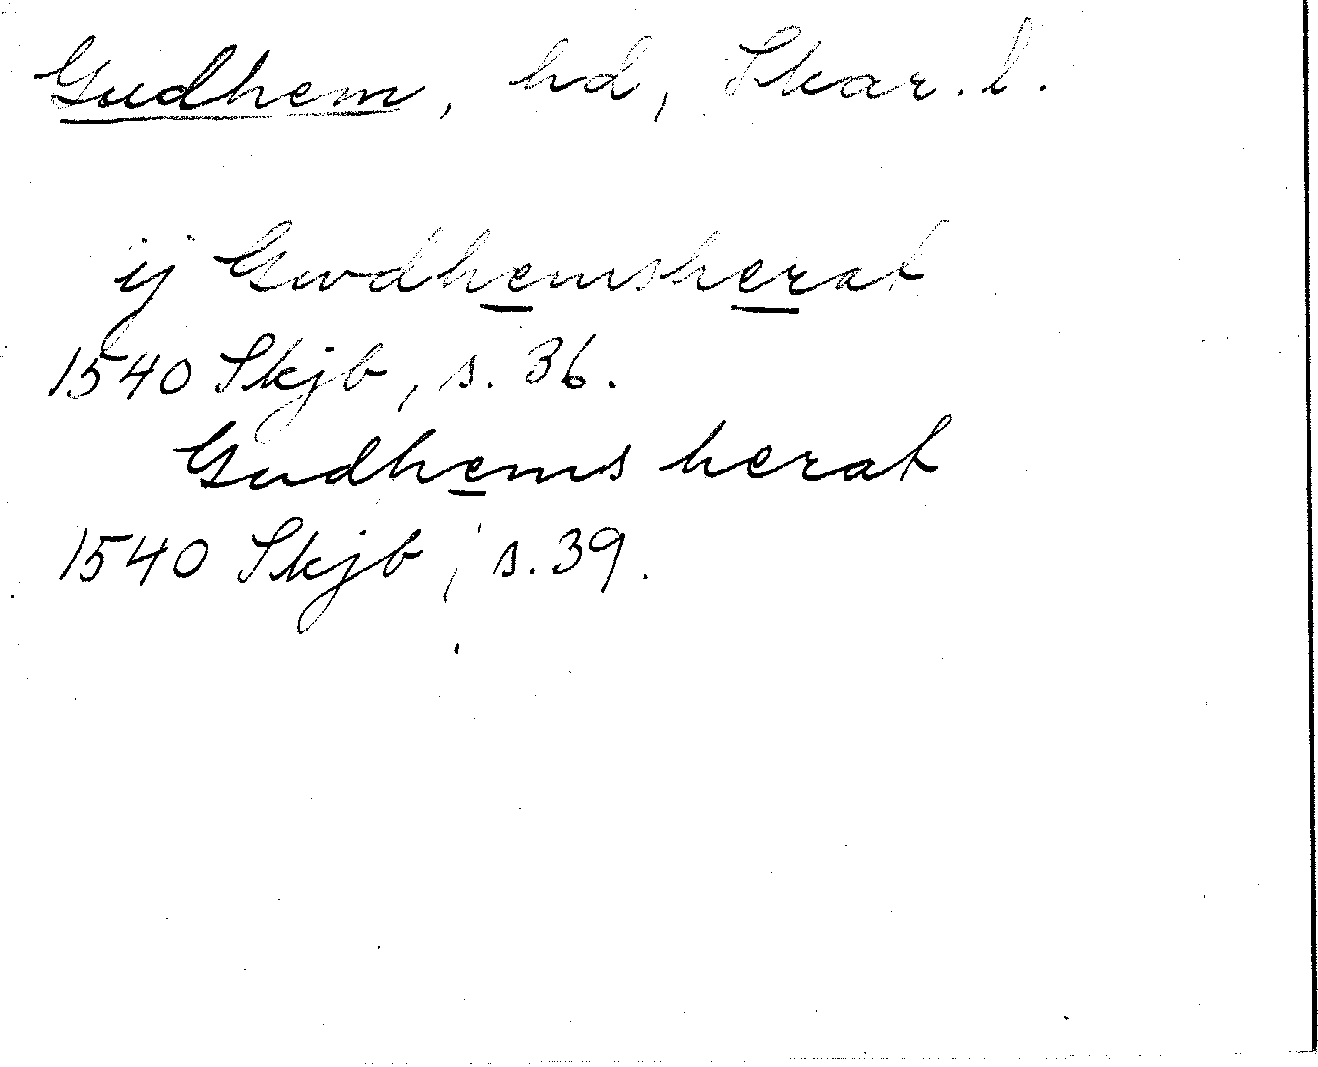 Gudhem, hd, Skar. l.
ij Gwdhemsherat
1540 Skjb, s. 36.
Gudhems herat
1540 Skjb, s. 39.